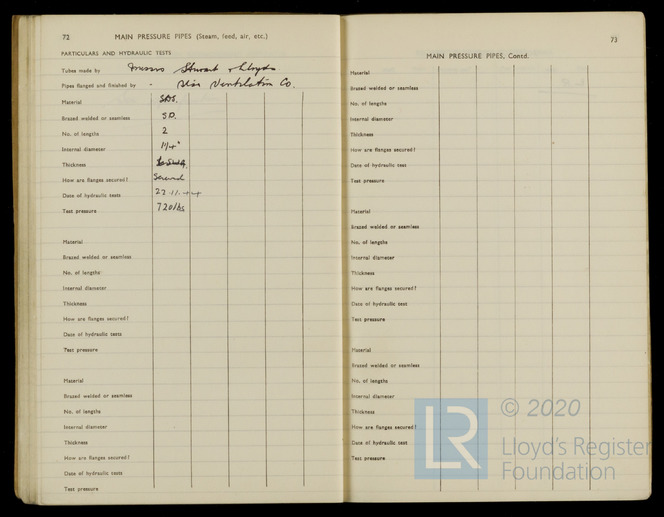 72
MAIN PRESSURE PIPES (Steam, feed, air, etc.)
PARTICULARS AND HYDRAULIC TESTS
Tubes made by Messrs Stewart & Lloyds
Pipes flanged and finished by - Ventilation Co.
Material S.D.S.
Brazed welded or seamless S.D.
No. of lengths 2
Internal diameter 1 1/4"
Thickness
How are flanges secured? Screwed
Date of hydraulic tests 22.11.44
Test pressure 720 lbs
Material
Brazed welded or seamless
No. of lengths
Internal diameter
Thickness
How are flanges secured?
Date of hydraulic tests
Test pressure
Material
Brazed welded or seamless
No. of lengths
Internal diameter
Thickness
How are flanges secured?
Date of hydraulic tests
Test pressure
73
MAIN PRESSURE PIPES, Contd.
Material
Brazed welded or seamless
No. of lengths
Internal diameter
Thickness
How are flanges secured?
Date of hydraulic test
Test pressure
Material
Brazed welded or seamless
No. of lengths
Internal diameter
Thickness
How are flanges secured?
Date of hydraulic test
Test pressure
Material
Brazed welded or seamless
No. of lengths
Internal diameter
Thickness
How are flanges secured?
Date of hydraulic test
Test pressure
LR
© 2020
Lloyd's Register
Foundation